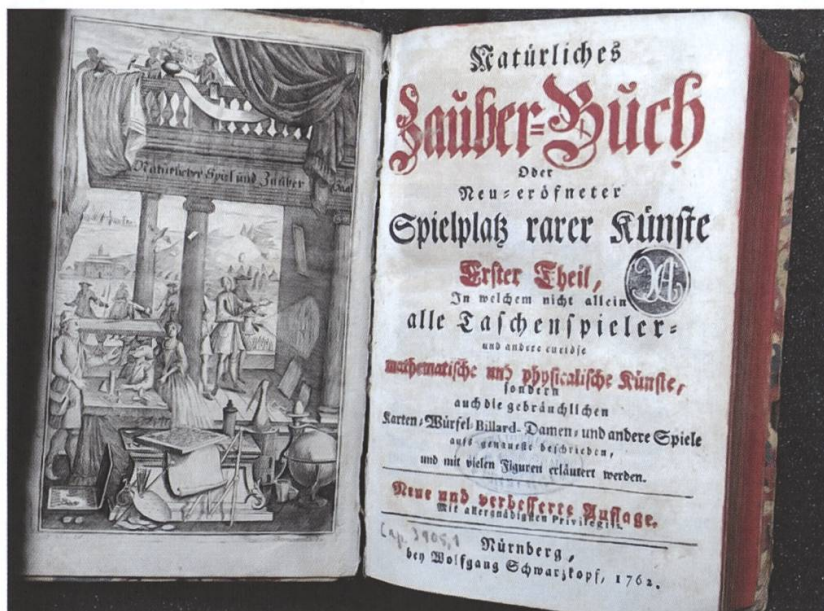 Natürlicher Spiel und Zauber Saal
Natürliches
Zauber=Buch
Oder
Neu=eröfneter
Spielplatz rarer Künste
Erster Theil,
In welchem nicht allein
alle Taschenspieler=
und andere curiöse
mathematische und physicalische Künste,
sondern
auch die gebräuchlichen
Karten-Würfel-Billard-Damen-und andere Spiele
aufs genaueste beschrieben,
und mit vielen Figuren erläutert werden.
Neue und verbesserte Auflage.
Mit allergnädigsten Privilegiis.
Cap. 3905,1
Nürnberg,
bey Wolfgang Schwarzkopf, 1762.